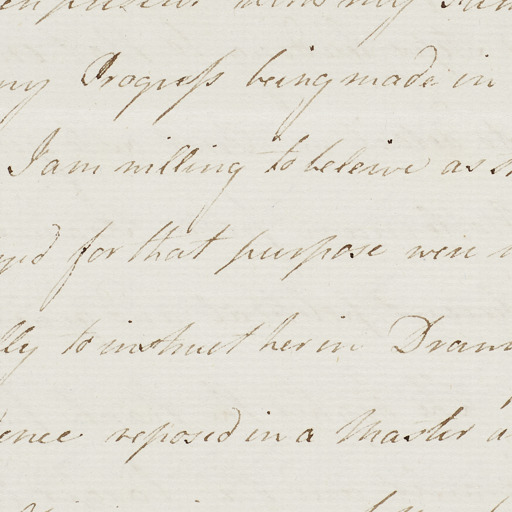 ny Progress being made in
I am willing to beleive as
yed for that purpose were
lly to instruct her in Draw
dence reposed in a Master a